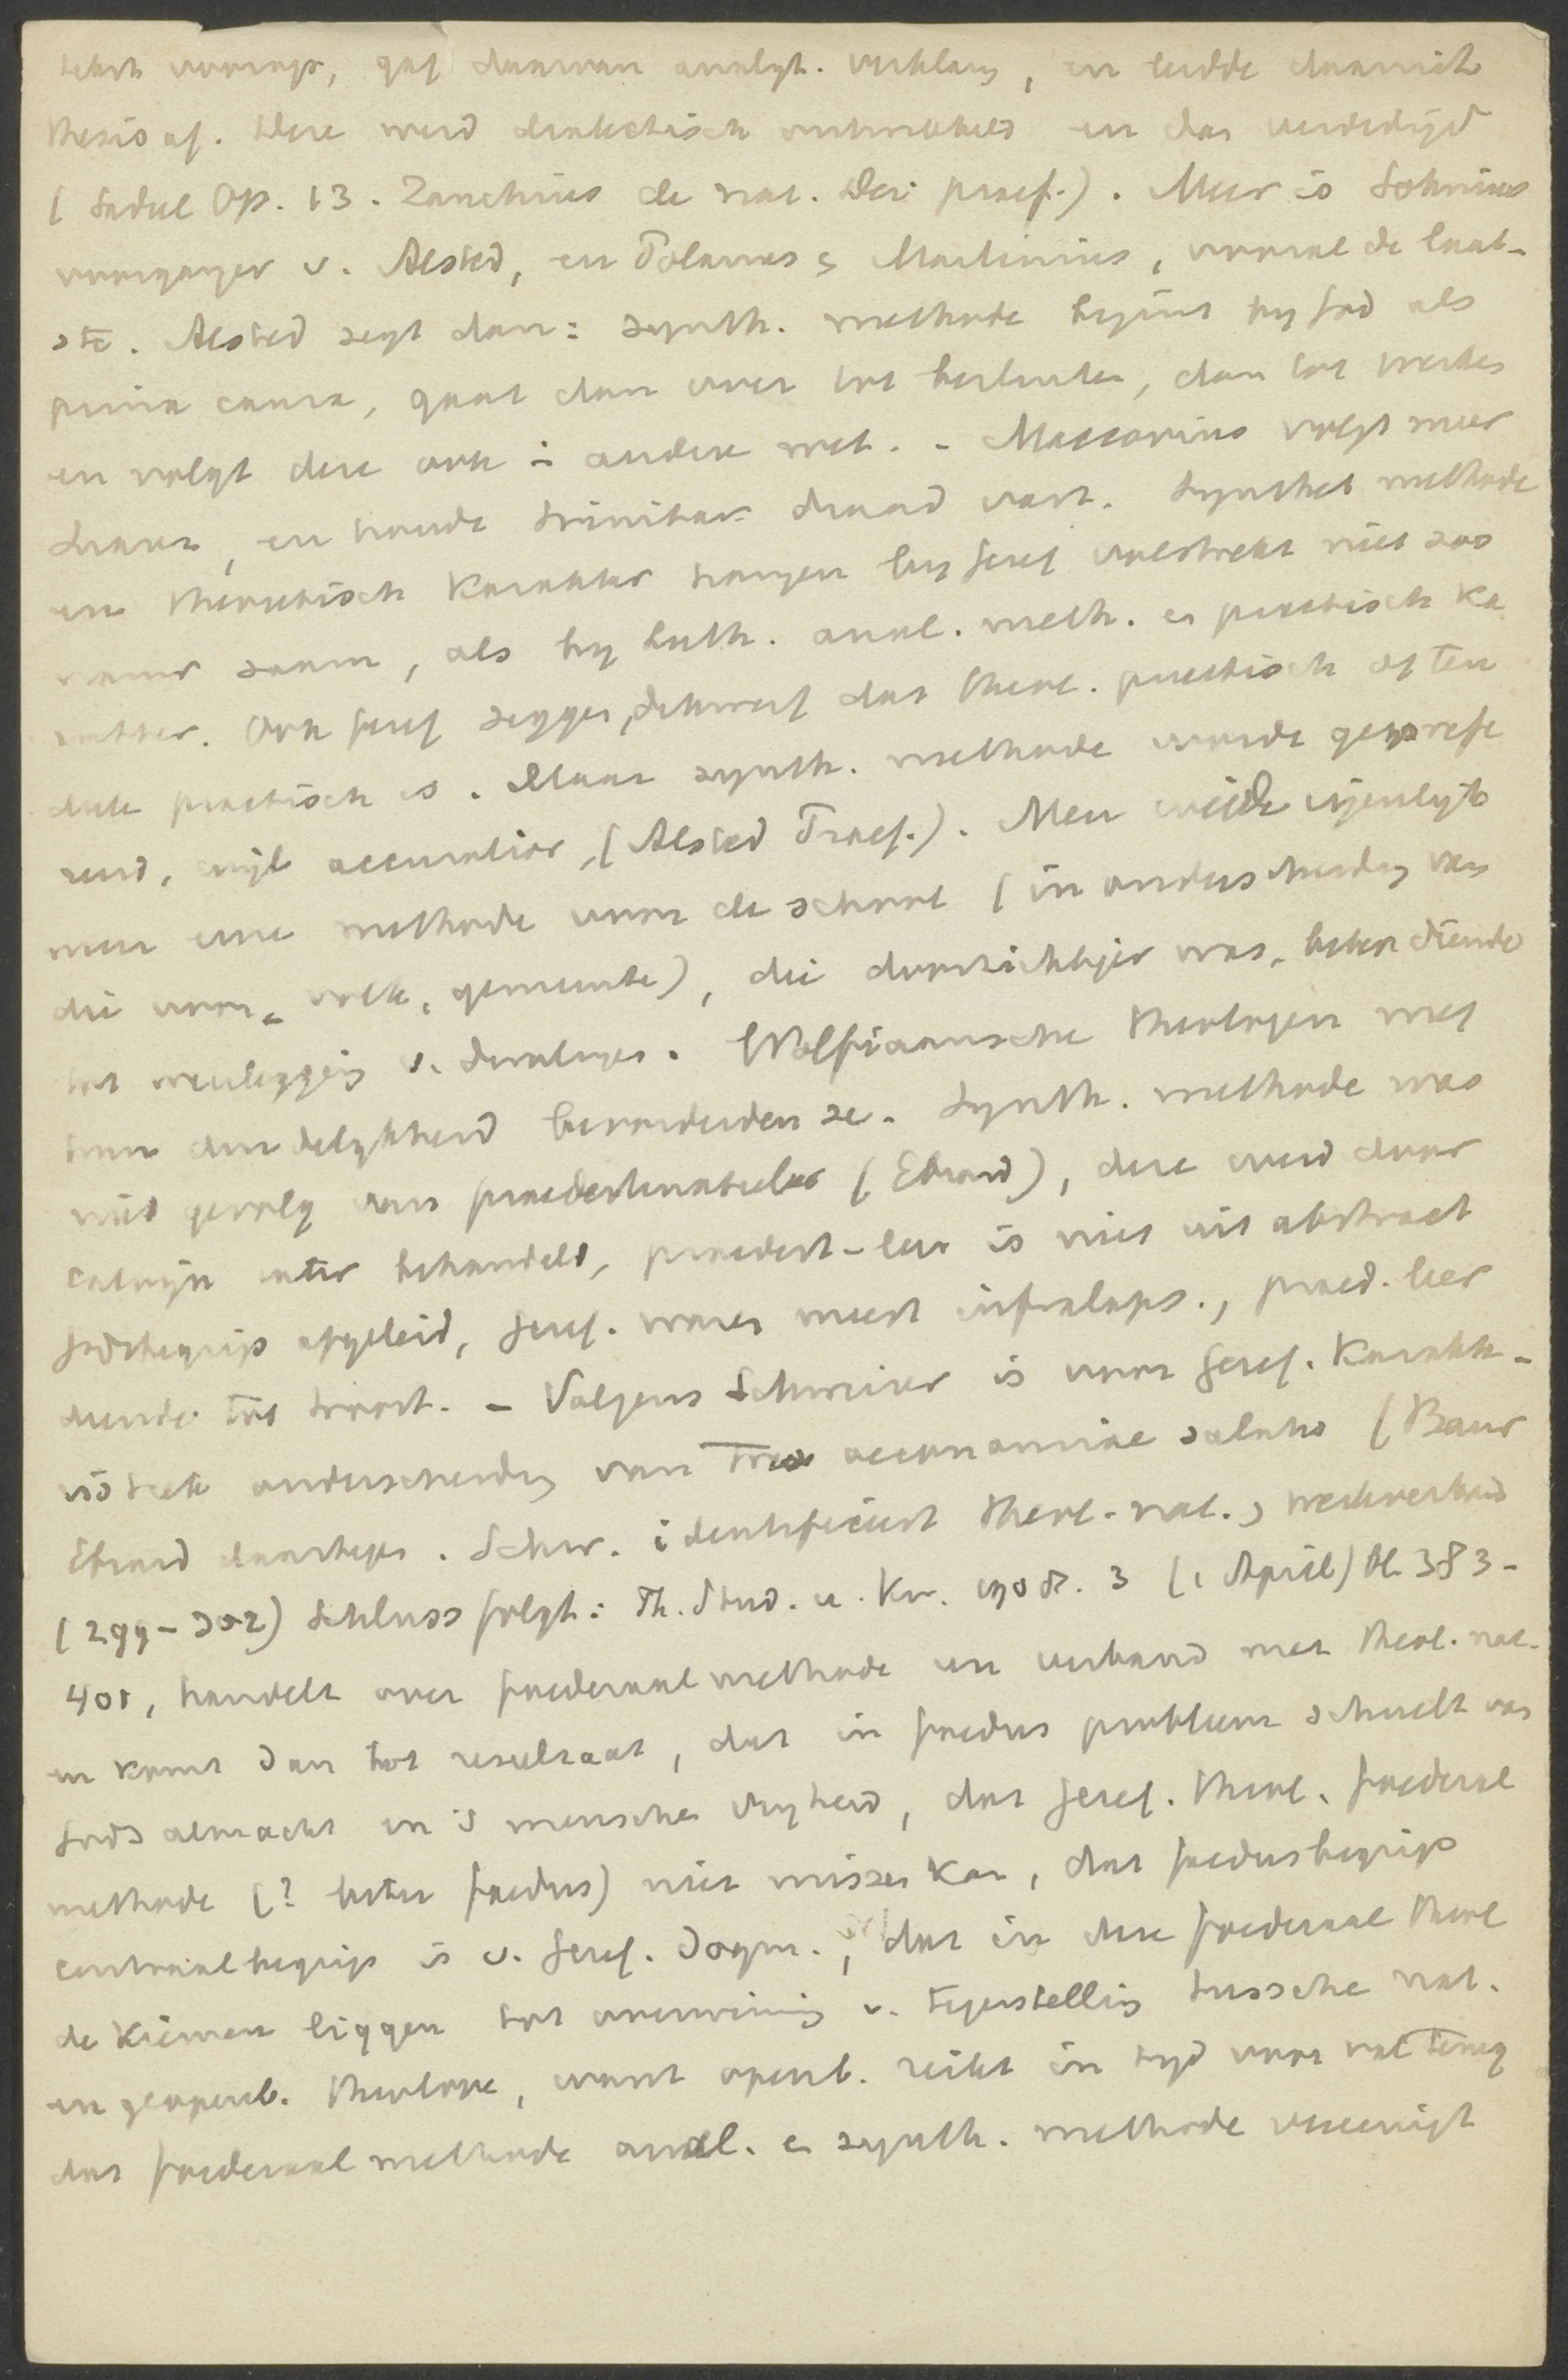 tekst voorop, gaf daarvan analyt. verklaring, en leidde daaruit
thesis af. Deze werd dialectisch ontwikkeld en dan verdedigd
(Sadeel Op. 13. Zanchius de nat. Dei praef.). Meer is Sohnius
voorganger v. Alsted, en Polanus & Martinius, vooral de laat-
ste. Alsted zegt dan: synth. methode begint bij God als
prima causa, gaat dan over tot besluiten, dan tot werken
en volgt deze orde i andere wet. - Maccovius volgt meer
, en houdt trinitar. draad vast. Synthet methode
en theoretisch karakter hangen bij Geref volstrekt niet zoo
nauw saam, als bij Luth. anal. meth. en practisch ka
rakter. Ook Geref zeggen dikwerf dat theol. practisch of ten
deele practisch is. Maar synth. methode werd geprefe
reerd, wijl accuratior, (Alsted Praef.). Men wilde eigenlijk
meer eene methode voor de school (in onderscheiding van
die voor volk, gemeente), die doorzichtiger was, beter diende
tot weerlegging v. dwalingen. Wolfiaansche theologen met
hun duidelijkheid bevorderden ze. Synth. methode was
niet gevolg van praedestinatieleer (Ebrard), deze werd door
Calvijn later behandeld, praedest-leer is niet uit abstract
Godsbegrip afgeleid, Geref. waren meest infralaps., praed. leer
diende tot troost. - Volgens Schweizer is voor Geref. karakte-
ristiek onderscheiding van trias oeconomiae salutis (Baur
Ebrard daartegen. Schw. identificeert theol. nat. & werkverbond
(299-302) Schluss folgt: Th. Stud. u. Kr. 1908. 3 (1 April) bl. 383-
401, handelt over foederaal methode en verband met theol. nat.
en komt dan tot resultaat, dat in foedus probleem schuilt van
Gods almacht en 's menschen vrijheid, dat Geref. theol. foederal
methode (? liever foedus) niet missen kan, dat foedusbegrip
centraalbegrip is v. Geref. dogm., dat in deze foederaal theol
de kiemen liggen tot overwinning v. tegenstelling tusschen nat.
en geopenb. theologie, want openb. reikt in tijd voor val terug
dat foederaal methode anal. en synth. methode vereenigt